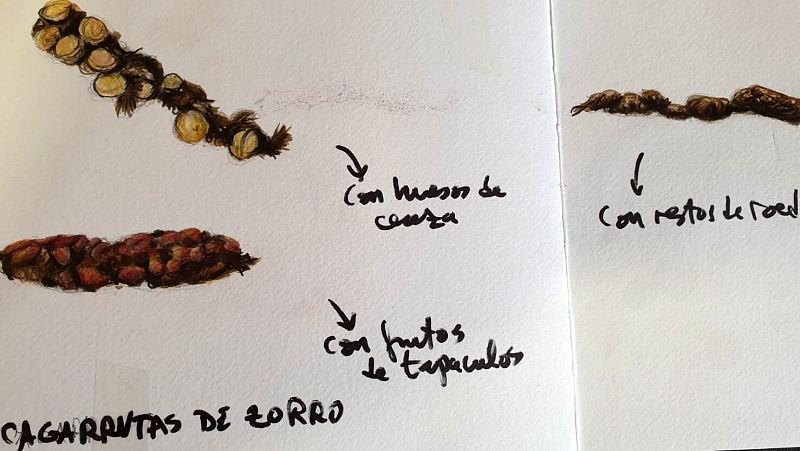 con huesos de
cereza
con restos de roed
con frutos
de tapaculos
CAGARRUTAS DE ZORRO